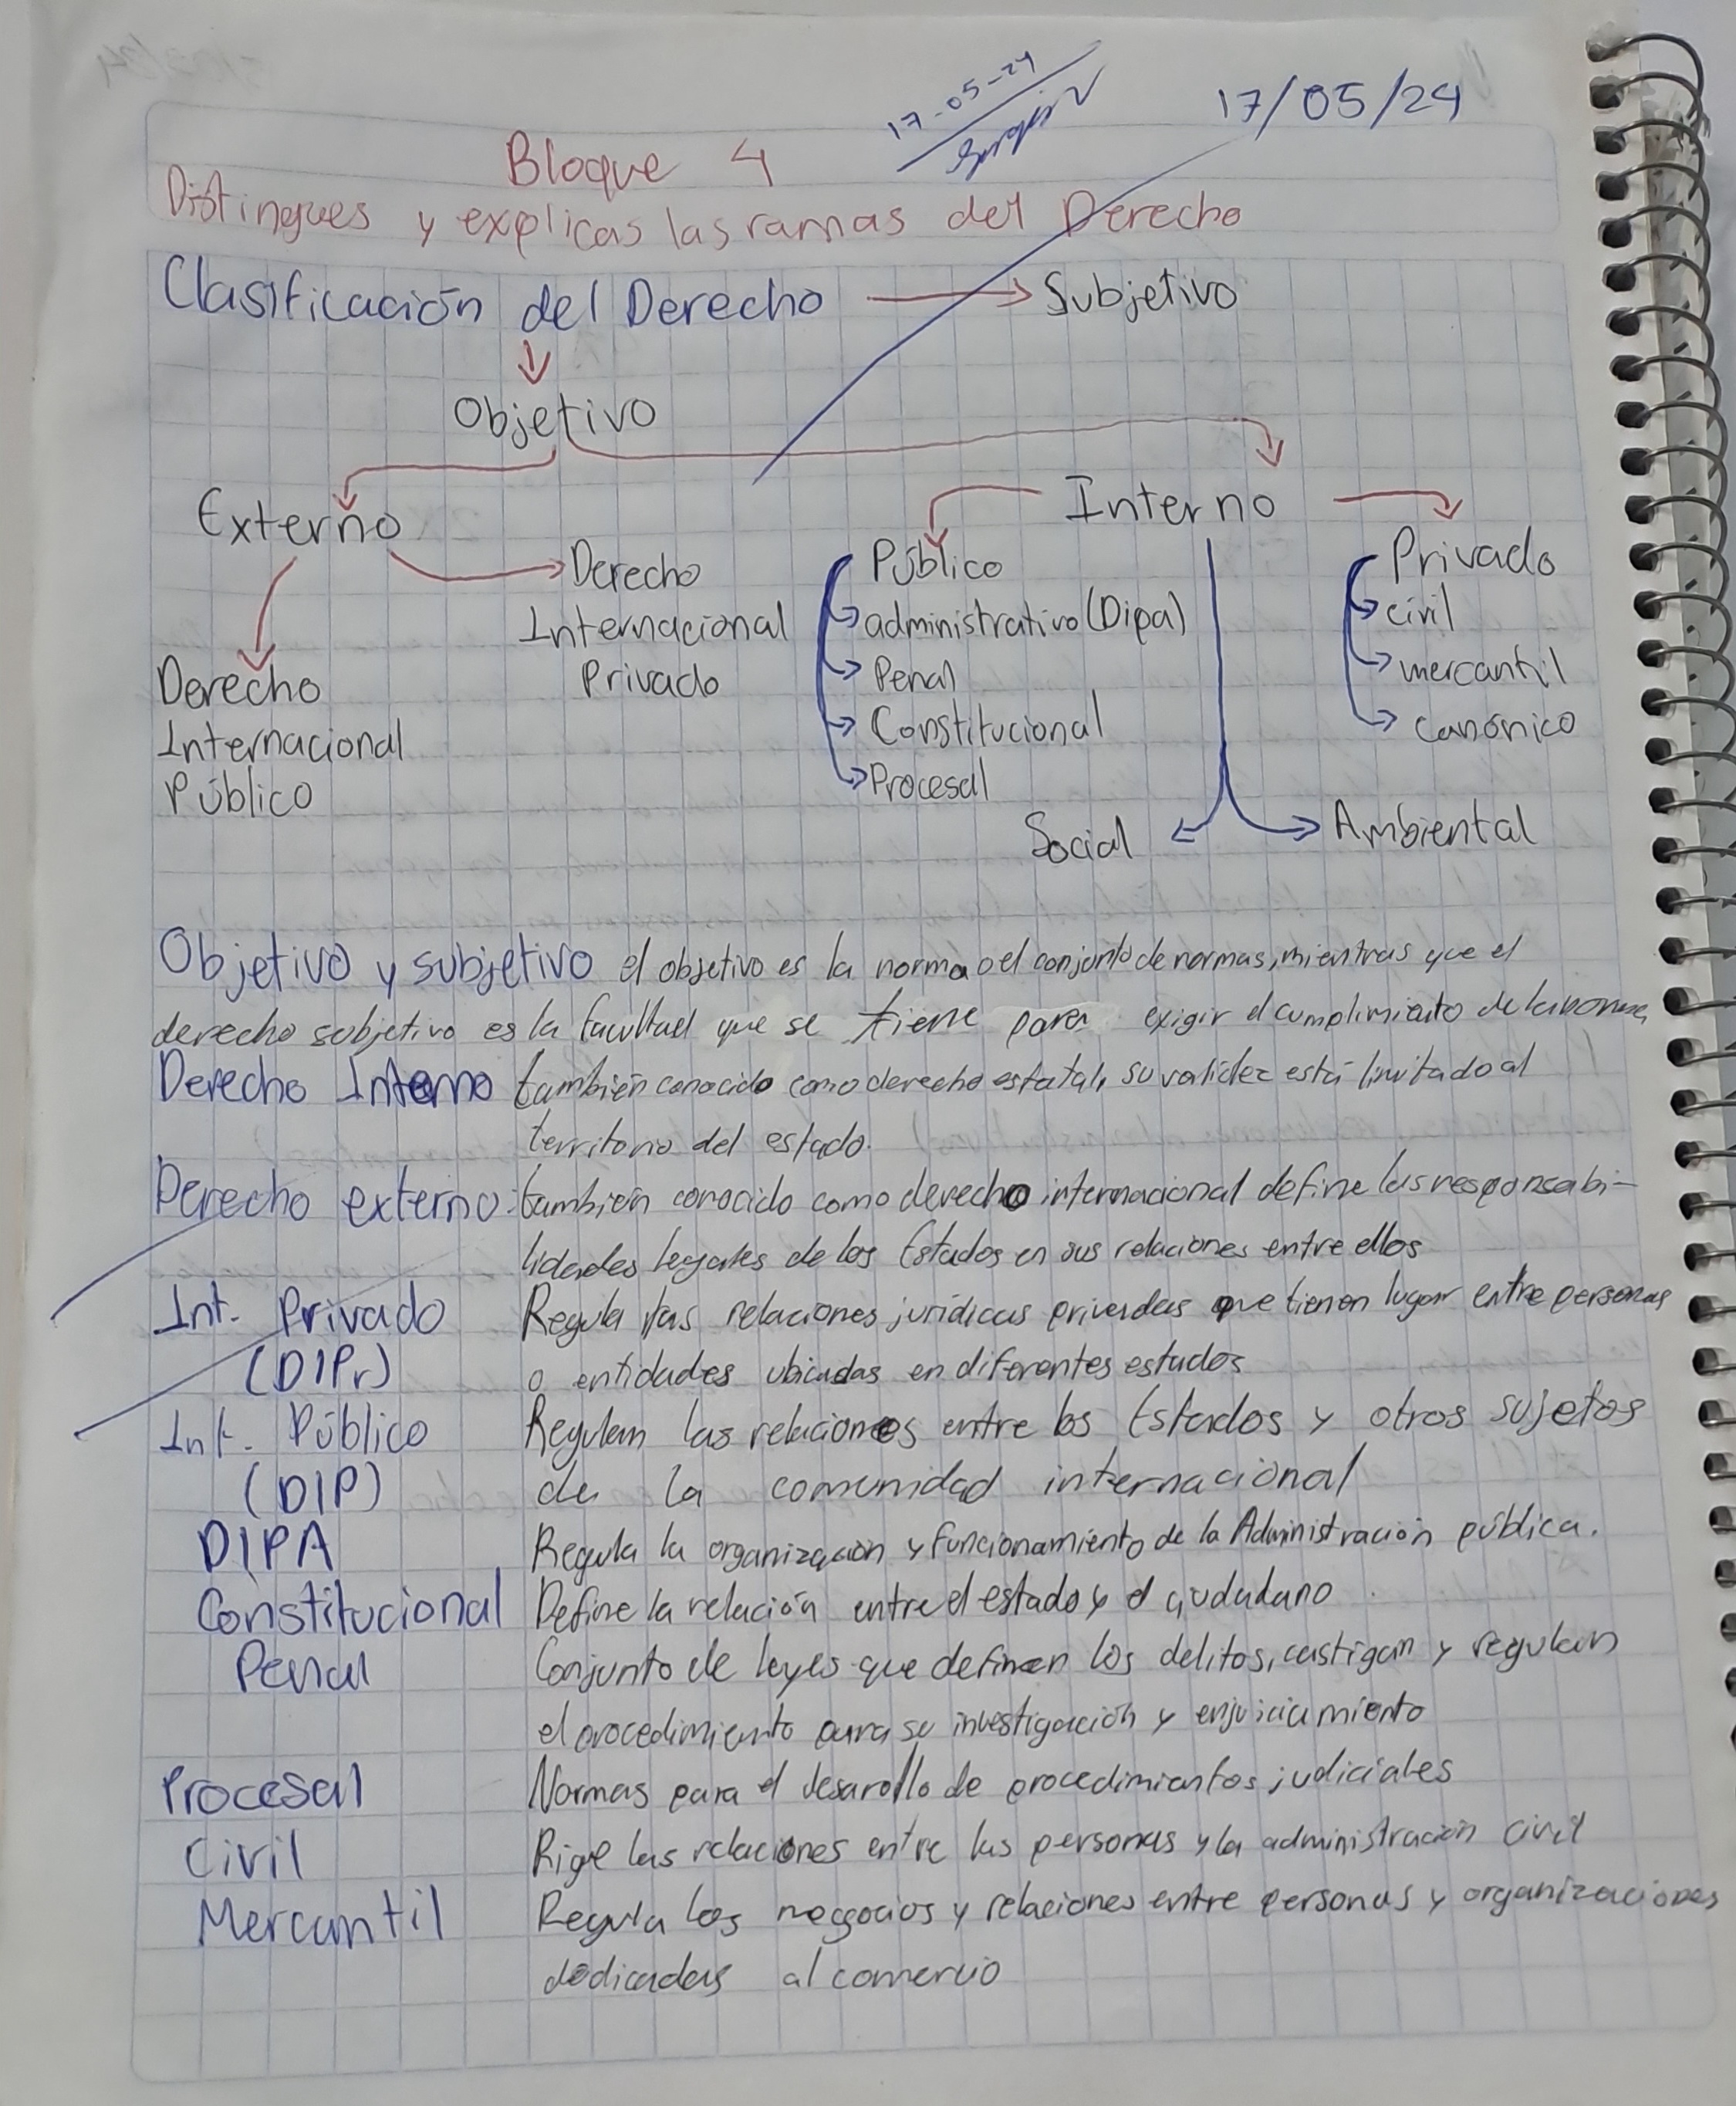 17-05-24
17/05/24
Bloque 4
Distingues y explicas las ramas del Derecho
Clasificación del Derecho → Subjetivo
Objetivo
Externo
Interno
Derecho
Internacional
Público
Derecho
Internacional
Privado
Público
administrativo (Dipa)
Penal
Constitucional
Procesal
Privado
civil
mercantil
canónico
Social
Ambiental
Objetivo y subjetivo el objetivo es la norma o el conjunto de normas, mientras que el
derecho subjetivo es la facultad que se tiene para exigir el cumplimiento de la norma
Derecho Interno también conocido como derecho estatal, su validez está limitado al
territorio del estado.
Derecho externo: también conocido como derecho internacional define las responsabi-
lidades legales de los Estados en sus relaciones entre ellos
Int. Privado Regula las relaciones jurídicas privadas que tienen lugar entre personas
(DIPr) o entidades ubicadas en diferentes estados
Int. Público Regulan las relaciones entre los Estados y otros sujetos
(DIP) de la comunidad internacional
DIPA Regula la organización y funcionamiento de la Administración pública.
Constitucional Define la relación entre el estado y el ciudadano
Penal Conjunto de leyes que definen los delitos, castigan y regulan
el procedimiento para su investigación y enjuiciamiento
Procesal Normas para el desarollo de procedimientos judiciales
Civil Rige las relaciones entre las personas y la administración civil
Mercantil Regula los negocios y relaciones entre personas y organizaciones
dedicadas al comercio